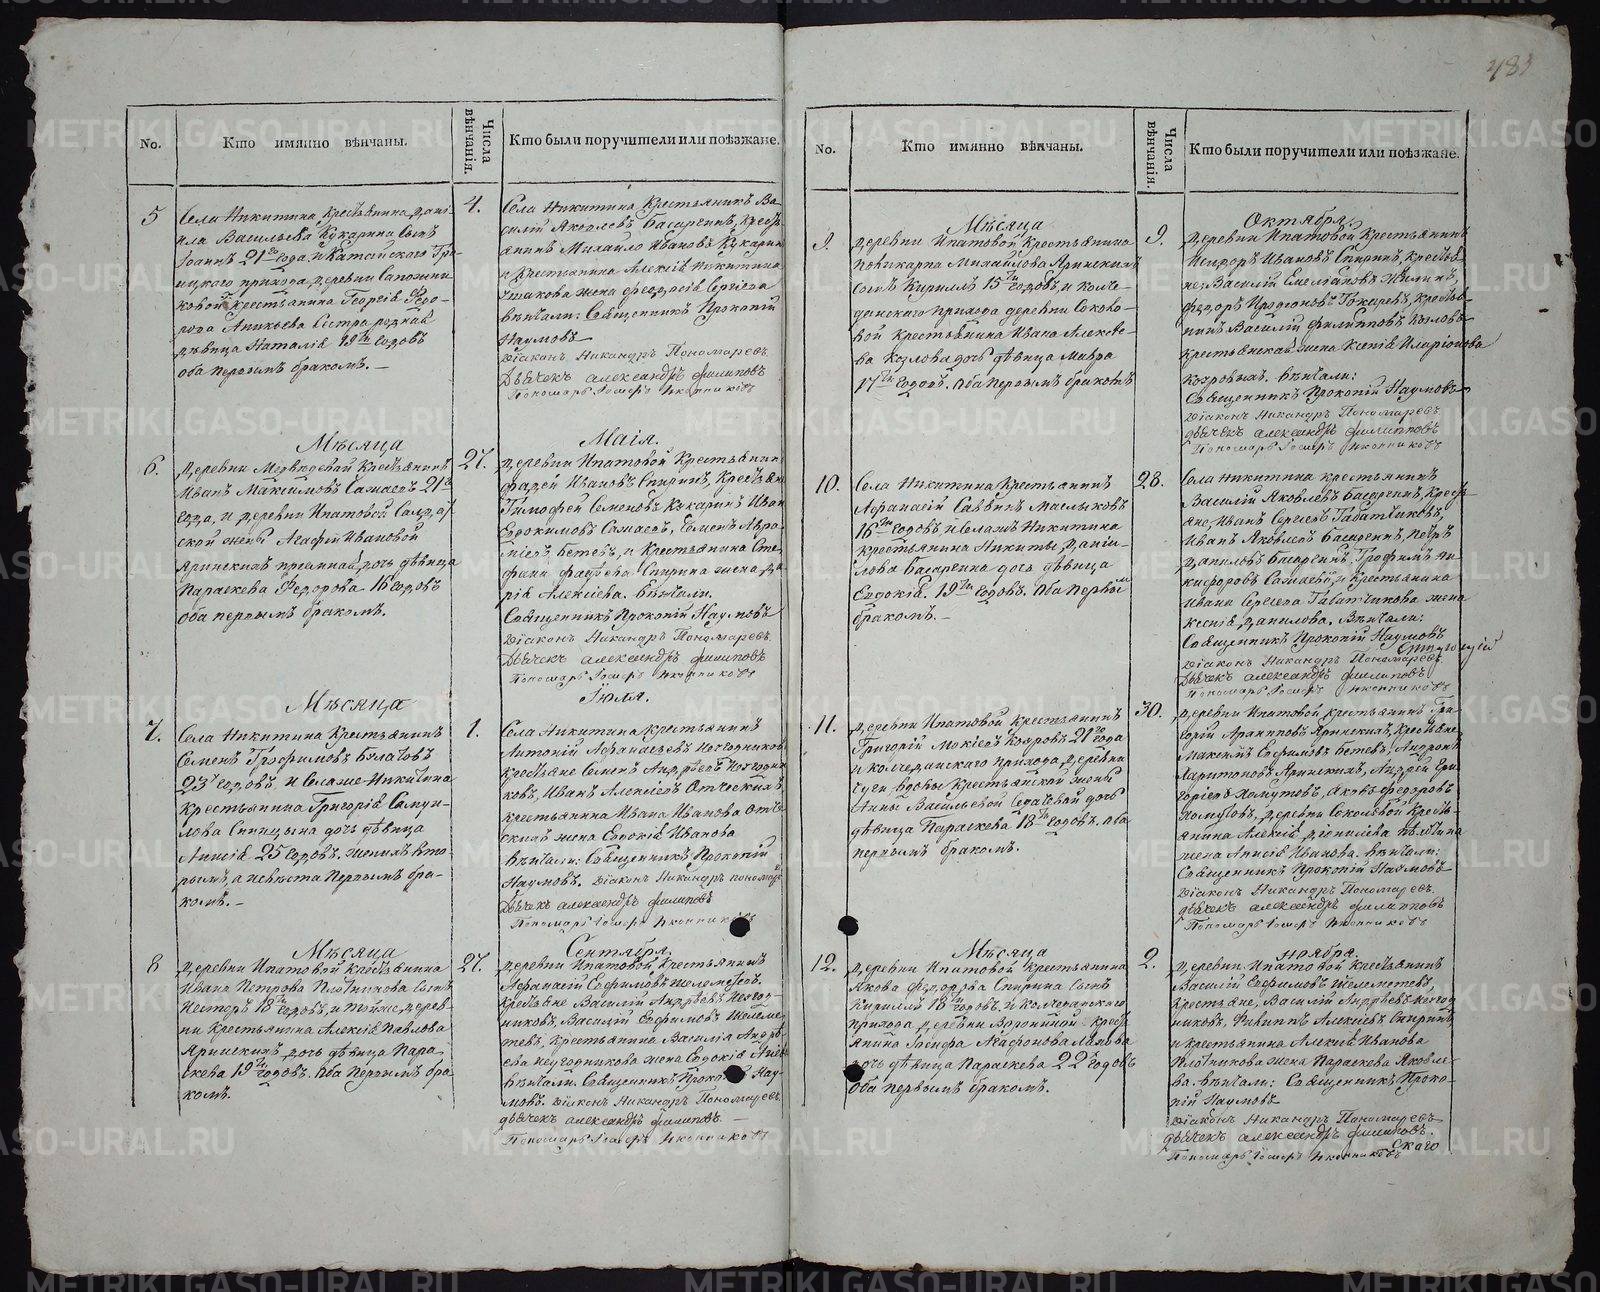 483
No.
Кто имянно вѣнчаны.
Числа вѣнчанія.
Кто были поручители или поѣзжане.
5
Села Никитина крестьянина Дани-
ила Васильева Кукарина сынъ
Іоаннъ 21го года, и Катайскаго Тро-
ицкаго прихода деревни
ковой крестьянина Георгія Ѳедо-
рова Аникьева сестра родная
дѣвица Наталія 19ти годовъ
оба первымъ бракомъ.
4.
Села Никитина крестьянинъ Ва-
силій Яковлевъ Басаргинъ, крестъ-
янинъ Михайло Ивановъ Кукаринъ
и крестьянина Алексія Никитина
жена Ѳеодосія Сергіева
вѣнчали: Священникъ Прокопій
Наумовъ
Діаконъ Никандръ Пономаревъ
Дьячекъ Александръ Филиповъ
Пономарь Іосифъ Иконниковъ
Мѣсяца
Маія.
6.
деревни Медвѣдевой крестьянинъ
Иванъ Максимовъ Сажаевъ 21го
года, и деревни Ипатовой Солдат-
ской жены Агафіи Ивановой
Яринскихъ пріемная дочь дѣвица
Параскева Ѳедорова 16 годовъ
оба первымъ бракомъ.
27.
деревни Ипатовой крестьянинъ
Фадей Ивановъ Спиринъ, крестьян
Тимофей Семеновъ Кукаринъ Иван
Евдокимовъ Сажаевъ, Семенъ Авра-
міевъ Бетевъ, и крестьянина Сте-
фана Фадѣева Спирина жена Да-
рія Алексіева. Вѣнчали.
Священникъ Прокопій Наумовъ
Діаконъ Никандръ Пономаревъ
Дьячекъ Александръ Филиповъ
Пономарь Іосифъ Иконниковъ
Мѣсяца
Іюля.
7.
Села Никитина крестьянинъ
Семенъ Трофимовъ Булатовъ
23 годовъ, и Селаже Никитина
крестьянина Григорія Самуи-
лова Спицына дочь дѣвица
Анисія 25 годовъ, женихъ вто-
рымъ, а невѣста первымъ бра-
комъ.
1.
Села Никитина крестьянинъ
Антоній Афанасьевъ Негодников
крестьяне Семенъ Андрѣевъ Негодни
ковъ, Иванъ Алексіевъ
крестьянина Ивана Иванова
жена Евдокія Иванова
вѣнчали: Священникъ Прокопій
Наумовъ. Діаконъ Никандръ Пономар
Дьячекъ Александръ Филиповъ
Пономарь Іосифъ Иконниковъ
Мѣсяца
Сентября.
8
деревни Ипатовой крестьянина
Ивана Петрова Плотникова сынъ
Несторъ 18ти годовъ, и тойже дерев-
ни крестьянина Алексія Павлова
Яринскихъ дочь дѣвица Пара-
скева 19ти годовъ. Оба первымъ бра-
комъ.
27.
деревни Ипатовой крестьянинъ
Афанасій Евфимовъ Шелеметевъ.
крестьяне Василій Андрѣевъ Негод-
никовъ, Василій Евфимовъ Шелеме-
тевъ, крестьянина Василія Андрѣ-
ева Негодникова жена Евдокія
Вѣнчали. Священникъ Прокопій Нау-
мовъ. Діаконъ Никандръ Пономаревъ
дьячекъ Александръ Филиповъ.
Пономарь Іосифъ Иконниковъ
No.
Кто имянно вѣнчаны.
Числа вѣнчанія.
Кто были поручители или поѣзжане.
Мѣсяца
Октября.
9.
деревни Ипатовой крестьянина
Поликарпа Михайлова Яринскихъ
сынъ Кириллъ 15ти годовъ и Колче-
данскаго прихода деревни Соколо-
вой крестьянина Ивана Алексѣе-
ва Козлова дочь дѣвица Мавра
17ти годовъ. Оба первымъ бракомъ
9.
деревни Ипатовой крестьянинъ
Исидоръ Ивановъ Спиринъ, крестья-
не: Василій Емельяновъ
Ѳедоръ Иродіоновъ Токаревъ, крестья-
нинъ Василій Филипповъ Козловъ
крестьянская жена Ксенія Иларіонова
Вѣнчали:
Священникъ Прокопій Наумовъ
Діаконъ Никандръ Пономаревъ
дьячекъ Александръ Филипповъ
Пономарь Іосифъ Иконниковъ
10.
Села Никитина крестьянинъ
Афанасій Саввинъ Маслыковъ
16ти годовъ, и Селажъ Никитина
крестьянина Никиты Даніи-
лова Басаргина дочь дѣвица
Евдокія. 19ти годовъ. Оба первымъ
бракомъ.
28.
Села Никитина крестьянинъ
Василій Яковлевъ Басаргинъ, крестъ-
яне, Иванъ Сергіевъ Табатчиковъ,
Иванъ Яковлевъ Басаргинъ, Петръ
Даниловъ Басаргинъ, Трофимъ Ни-
кифоровъ Сажаевъ, и крестьянина
Ивана Сергіева Табатчикова жена
Ксенія Данилова. Вѣнчали:
Священникъ Прокопій Наумовъ
Діаконъ Никандръ Пономаревъ.
Дьячекъ Александръ Филиповъ
Пономарь Іосифъ Иконниковъ
11.
деревни Ипатовой крестьянинъ
Григорій Мокіевъ Кояровъ 21го года
и Колчеданскаго прихода, деревни
вдовы крестьянской жены
Анны Васильевой дочь
дѣвица Параскева 18ти годовъ. Оба
первымъ бракомъ.
30.
деревни Ипатовой крестьянинъ Гри-
горій Архиповъ Яринскихъ, крестьяне
Максимъ Евфимовъ Бетевъ, Андронъ
Харитоновъ Яринскихъ, Андрей Гри-
горіевъ Хомутовъ, Яковъ Ѳедоровъ
Хомутовъ, деревни Соколовой кресть-
янина Алексія Діонисіева
жена Анисія Иванова. Вѣнчали:
Священникъ Прокопій Наумовъ
Діаконъ Никандръ Пономаревъ.
дьячекъ Александръ Филипповъ
Пономарь Іосифъ Иконниковъ
Мѣсяца
Ноября.
12.
деревни Ипатовой крестьянина
Якова Ѳедорова Спирина сынъ
Кириллъ 18ти годовъ. и Колчеданскаго
прихода деревни Воронины крестъ-
янина Іосифа Агафонова
дочь дѣвица Параскева 22хъ годовъ
Оба первымъ бракомъ.
2.
деревни Ипатовой крестьянинъ
Василій Евфимовъ Шелеметевъ,
крестьяне, Василій Андрѣевъ Негод
никовъ, Филиппъ Алексіевъ Спиринъ
и крестьянина Алексія Иванова
Плотникова жена Параскева Яковле-
ва. Вѣнчали: Священникъ Проко-
пій Наумовъ
Діаконъ Никандръ Пономаревъ
дьячекъ Александръ Филиповъ.
Пономарь Іосифъ Иконниковъ
скаго
METRIKI.GASO-URAL.RU